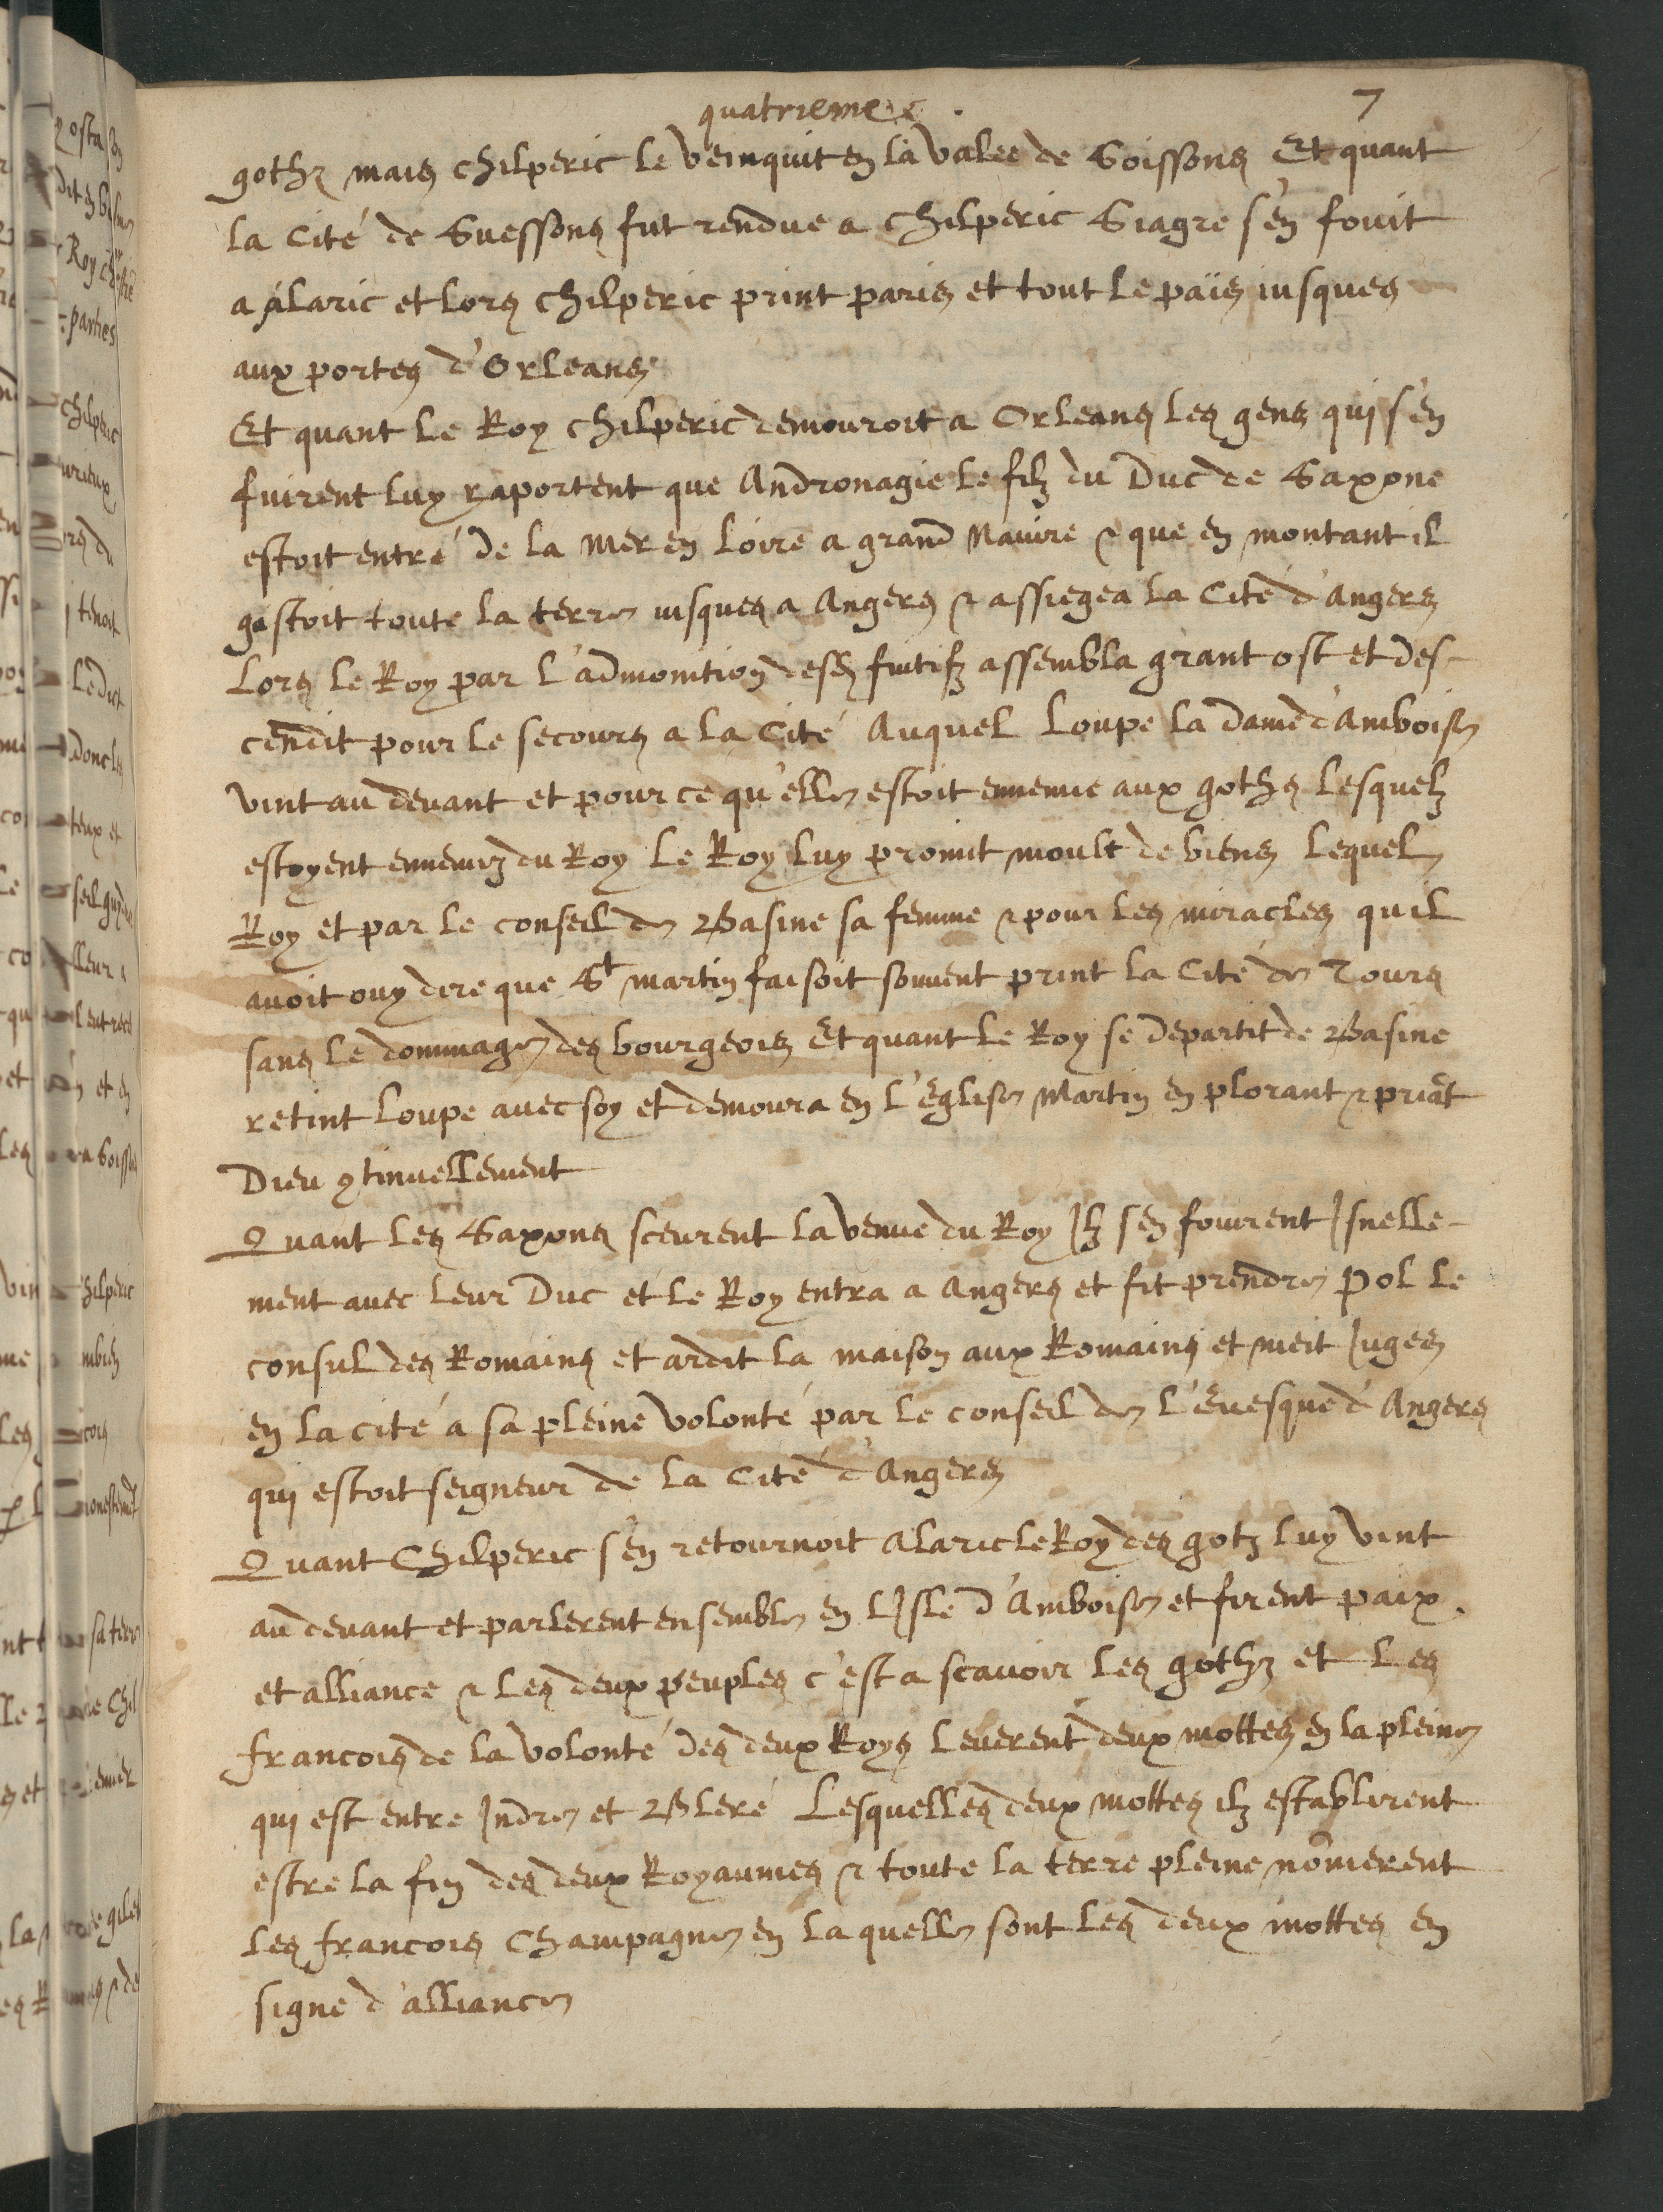 quatriemec .
7
gothz mais chilperic le veinquit en la valee de Soissons Et quant
la Cité de Suessons fut rendue a chilperic Siagre s'en fouit
a alaric et lors chilperic print paris et tout le païs iusques
aux portes d'Orleans
Et quant le Roy chilperic demouroit a Orleans les gens qui s'en
fuirent luy raportent que Andronagie le filz du Duc de Saxone
estoit entré de la mer en loire a grand Nauire & que en montant il
gastoit toute la terre iusques a Angers & assiegea la Cité d'angers
Lors le Roy par l'admonition desds fuitifz assembla grant ost et des-
cendit pour le secours a la Cité Auquel Loupe la dame d'Amboise
vint au deuant et pour ce qu'elle estoit ennemie aux goths lesquelz
estoyent ennemiz du Roy Le Roy luy promit moult de biens Lequel
Roy et par le conseil de Basine sa femme & pour les miracles quil
auoit ouy dere que St martin faisoit souuent print la Cité de Tours
sans le dommage des bourgeois Et quant le Roy se departit de Basine
retint Loupe auec soy et demoura en l'Eglise Martin en plorant & priãt
Dieu ꝯtinuellement
Quant les Saxons sceurent la venue du Roy Ilz sen fouirent Isnelle-
ment auec leur Duc et le Roy entra a Angers et fit prendre Pol le
consul des Romains et ardit la maison aux Romains et meit Iuges
en la cité a sa pleine volonté par le conseil de l'Euesque d'Angers
qui estoit seigneur de la Cité d'Angers
Quant Chilperic s'en retournoit Alaric le Roy des gotz luy vint
au deuant et parlerent ensemble en lIsle d'Amboise et firent paix
et alliance & les deux peuples c'est a scauoir les gothz et les
francois de la volonté des deux Roys leuerent deux mottes en la pleine
qui est entre Indre et Bleré Lesquelles deux mottes ilz establirent
estre la fin des deux Royaumes & toute la terre pleine nõmerent
les francois Champagne en laquelle sont les deux mottes en
signe d'alliance